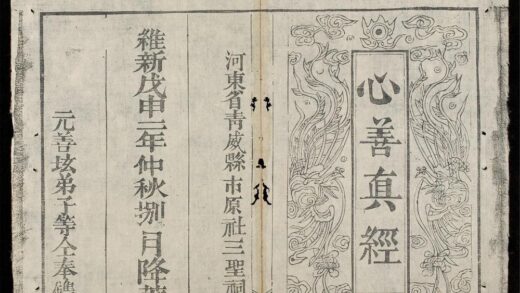 心善真經
河東省青威縣市原社三聖祠
維新戊申二年仲秋捌月降
元善垓弟子等仝奉